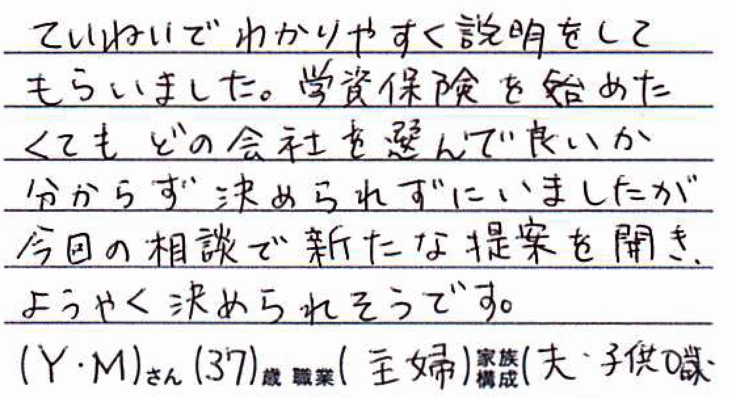 ていねいでわかりやすく説明をして
もらいました。学資保険を始めた
くてもどの会社を選んで良いか
分からず決められずにいましたが
今回の相談で新たな提案を聞き、
ようやく決められそうです。
(Y・M)さん(37)歳 職業(主婦)家族構成(夫・子供0歳